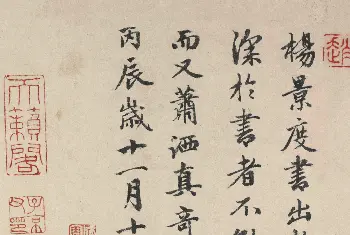 楊景度書出
深於書者不
而又蕭洒真奇
丙辰歲十一月十
天籟閣